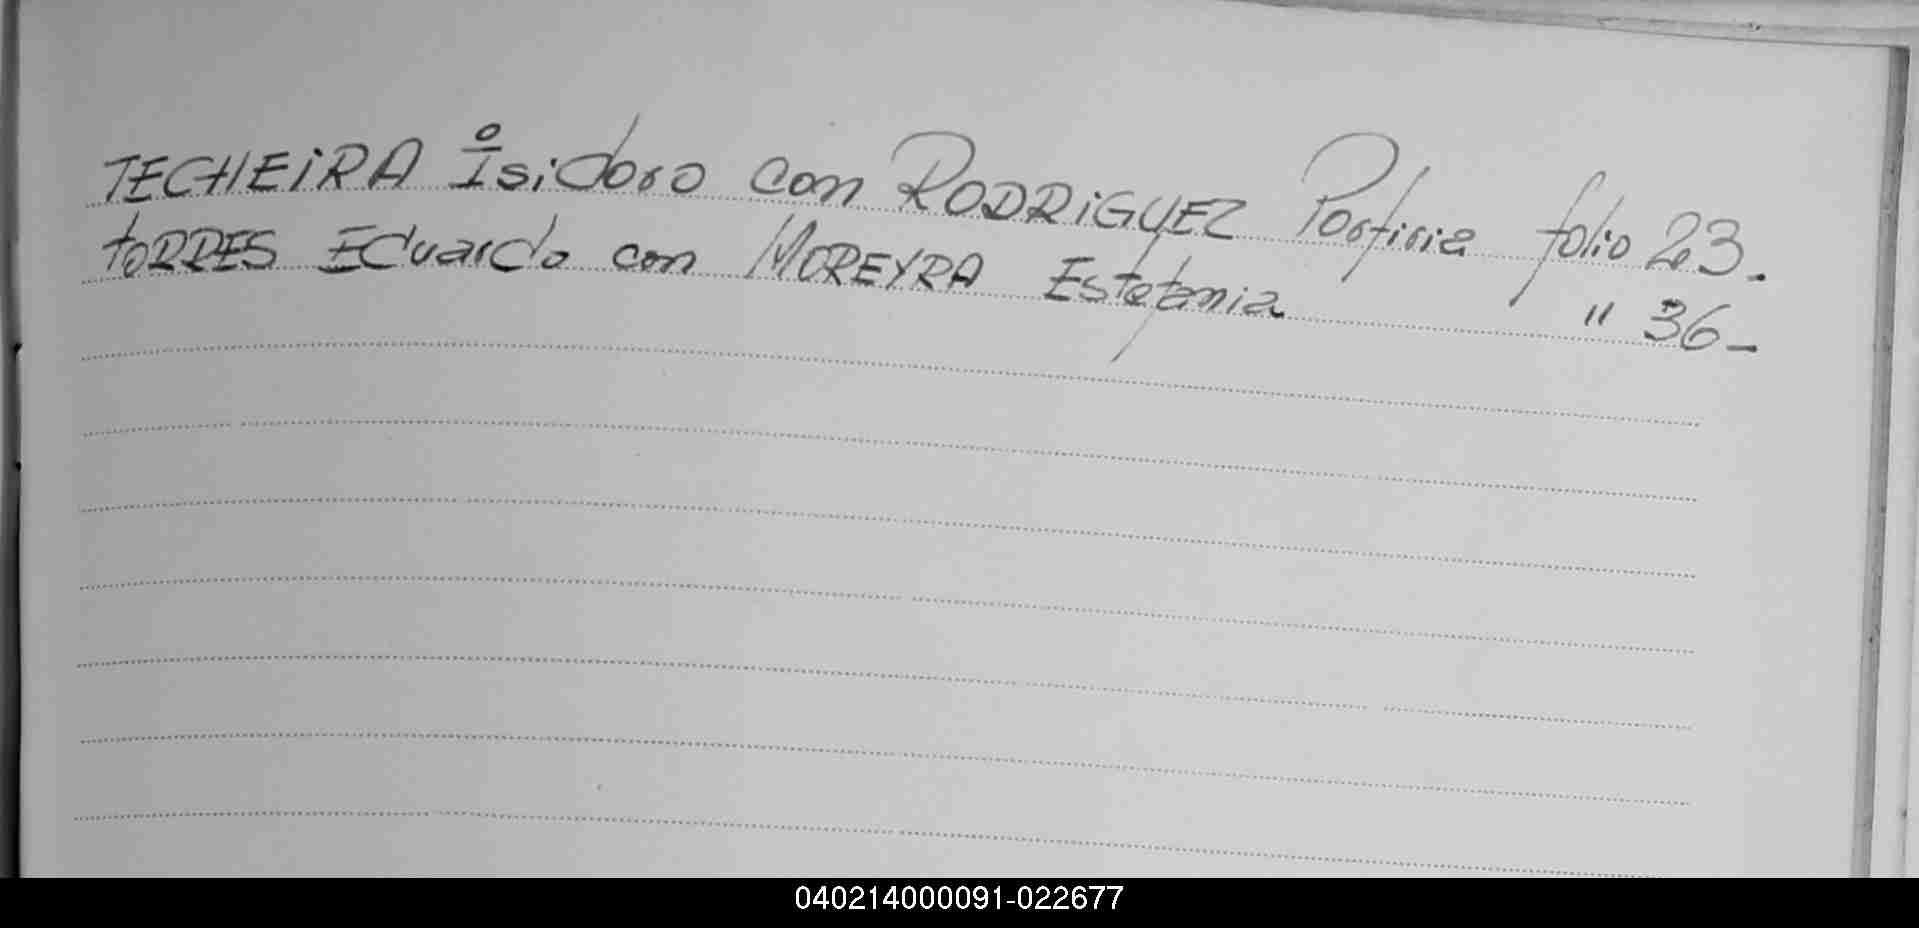 TECHEIRA Isidoro con RODRIGUEZ Porfiria folio 23.
TORRES Eduardo con MOREYRA Estefania " 36-
040214000091-022677